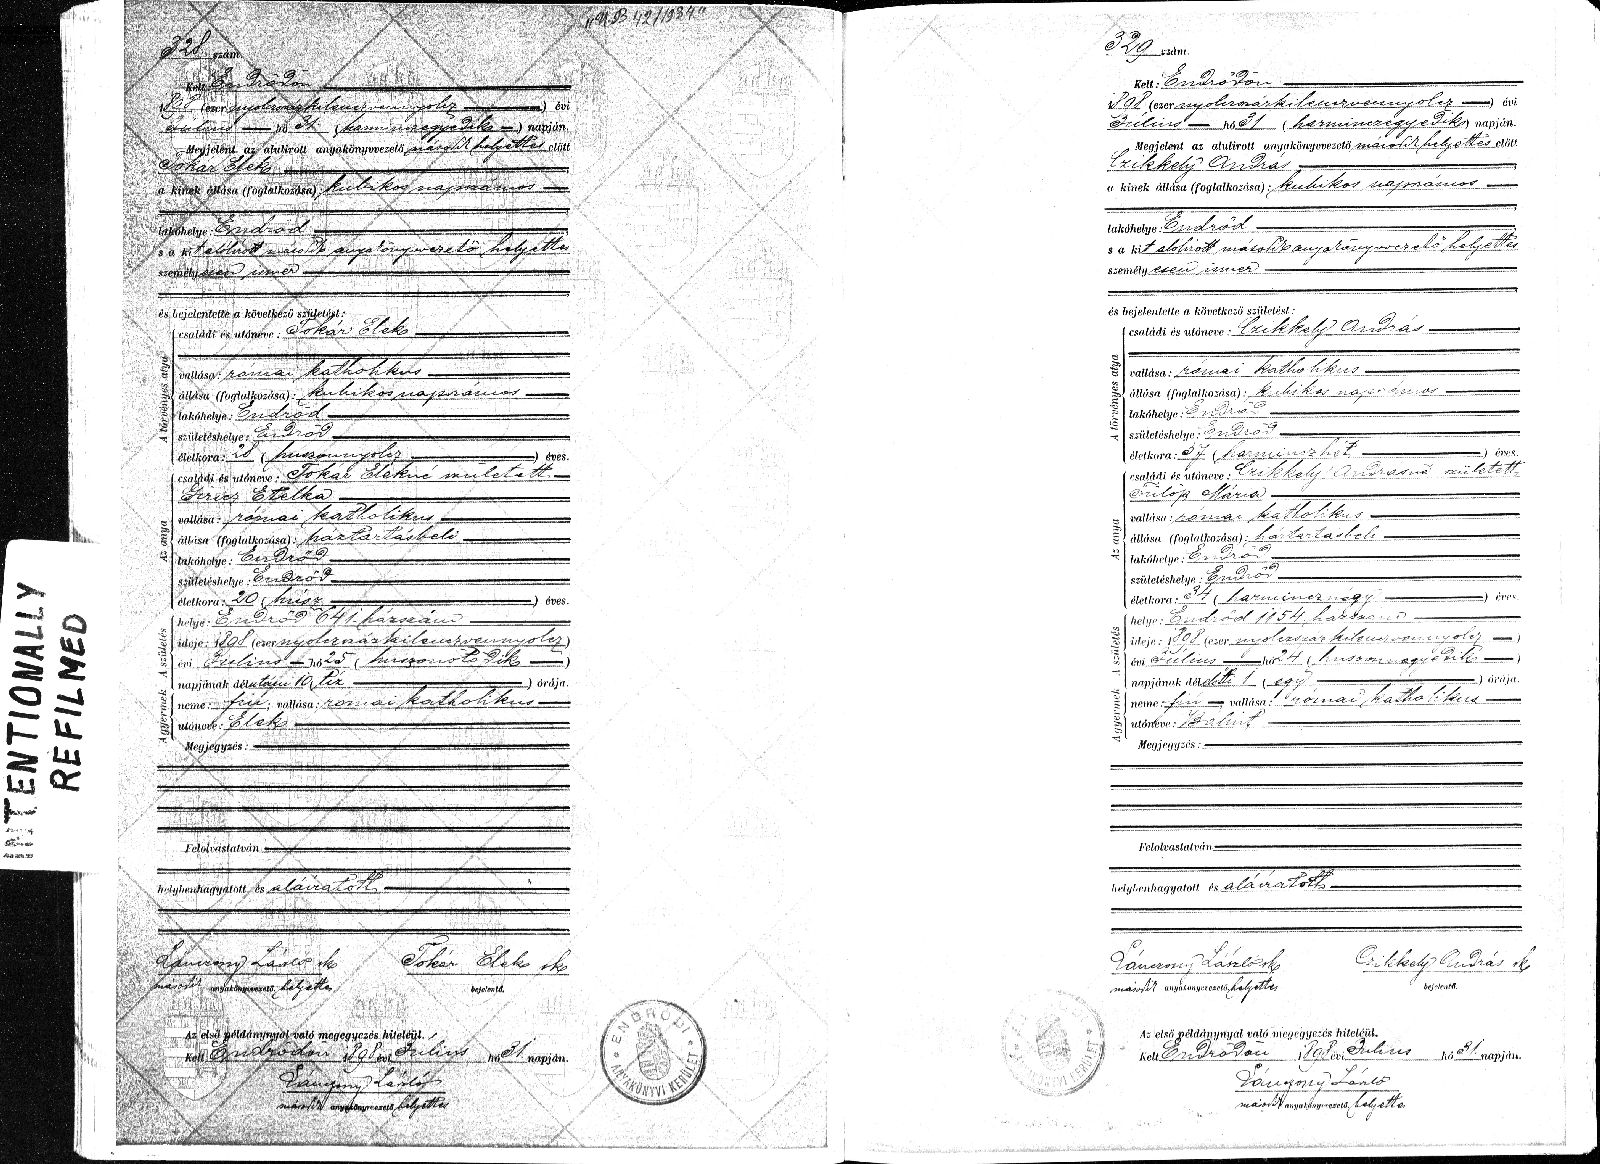 328 szám.
Kelt: Endrődön
1898 (ezernyolczszázkilenczvennyolcz) évi
Július hó 31 (harminczegyedik) napján.
Megjelent az alulirott anyakönyvvezető második helyettes előtt
Tokár Elek
a kinek állása (foglalkozása): kubikos napszámos
lakóhelye: Endrőd
s a kit alulirott másodk anyakönyvvezető helyettes
személyesen ismer
és bejelentette a következő születést:
A törvényes atya
családi és utóneve: Tokár Elek
vallása: római katholikus
állása (foglalkozása): kubikos napszámos
lakóhelye: Endrőd
születéshelye: Endrőd
életkora: 28 (huszonnyolcz) éves.
Az anya
családi és utóneve: Tokár Elekné született
Etelka
vallása: római katholikus
állása (foglalkozása): háztartásbeli
lakóhelye: Endrőd
születéshelye: Endrőd
életkora: 20 (húsz) éves.
A születés
helye: Endrőd 641. házszám
ideje: 1898 (ezernyolczszázkilenczvennyolcz)
évi Július hó 25 (huszonötödik)
napjának délutáni 10 (tíz) órája.
A gyermek
neme: fiú; vallása: római katholikus
utóneve: Elek
Megjegyzés:
Felolvastatván
helybenhagyatott és aláiratott
László sk Tokár Elek sk
második anyakönyvvezető, helyettes bejelentő.
Az első példánynyal való megegyezés hiteléül.
Kelt Endrődön 1898 évi Július hó 31 napján.
László
második anyakönyvvezető, helyettes
ENDRŐDI ANYAKÖNYVI KERÜLET
329 szám.
Kelt: Endrődön
1898 (ezernyolczszázkilenczvennyolcz) évi
Július hó 31 (harminczegyedik) napján.
Megjelent az alulirott anyakönyvvezető második helyettes előtt
Czikkely András
a kinek állása (foglalkozása): kubikos napszámos
lakóhelye: Endrőd
s a kit alulirott másodk anyakönyvvezető helyettes
személyesen ismer
és bejelentette a következő születést:
A törvényes atya
családi és utóneve: Czikkely András
vallása: római katholikus
állása (foglalkozása): kubikos napszámos
lakóhelye: Endrőd
születéshelye: Endrőd
életkora: 37 (harminczhét) éves.
Az anya
családi és utóneve: Czikkely Andrásné született
Fülöp Mária
vallása: római katholikus
állása (foglalkozása): háztartásbeli
lakóhelye: Endrőd
születéshelye: Endrőd
életkora: 34 (harmincznégy) éves.
A születés
helye: Endrőd 1154. házszám
ideje: 1898 (ezernyolczszázkilenczvennyolcz)
évi Július hó 24 (huszonnegyedik)
napjának délelőtti 1 (egy) órája.
A gyermek
neme: fiú; vallása: római katholikus
utóneve: Bálint
Megjegyzés:
Felolvastatván
helybenhagyatott és aláiratott
László sk Czikkely András sk
második anyakönyvvezető, helyettes bejelentő.
Az első példánynyal való megegyezés hiteléül.
Kelt Endrődön 1898 évi Július hó 31 napján.
László
második anyakönyvvezető, helyettes
TENTIONALLY
REFILMED